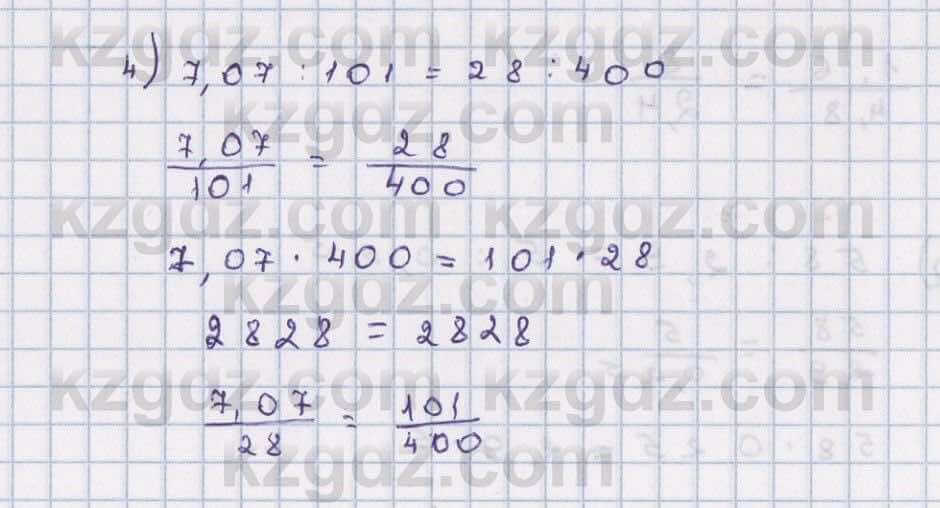 4) 7,07 : 101 = 28 : 400
7,07/101 = 28/400
7,07 · 400 = 101 · 28
2828 = 2828
7,07/28 = 101/400
kzgdz.com kzgdz.com
kzgdz.com
kzgdz.com kzgdz.com
kzgdz.com
kzgdz.com kzgdz.com
kzgdz.com